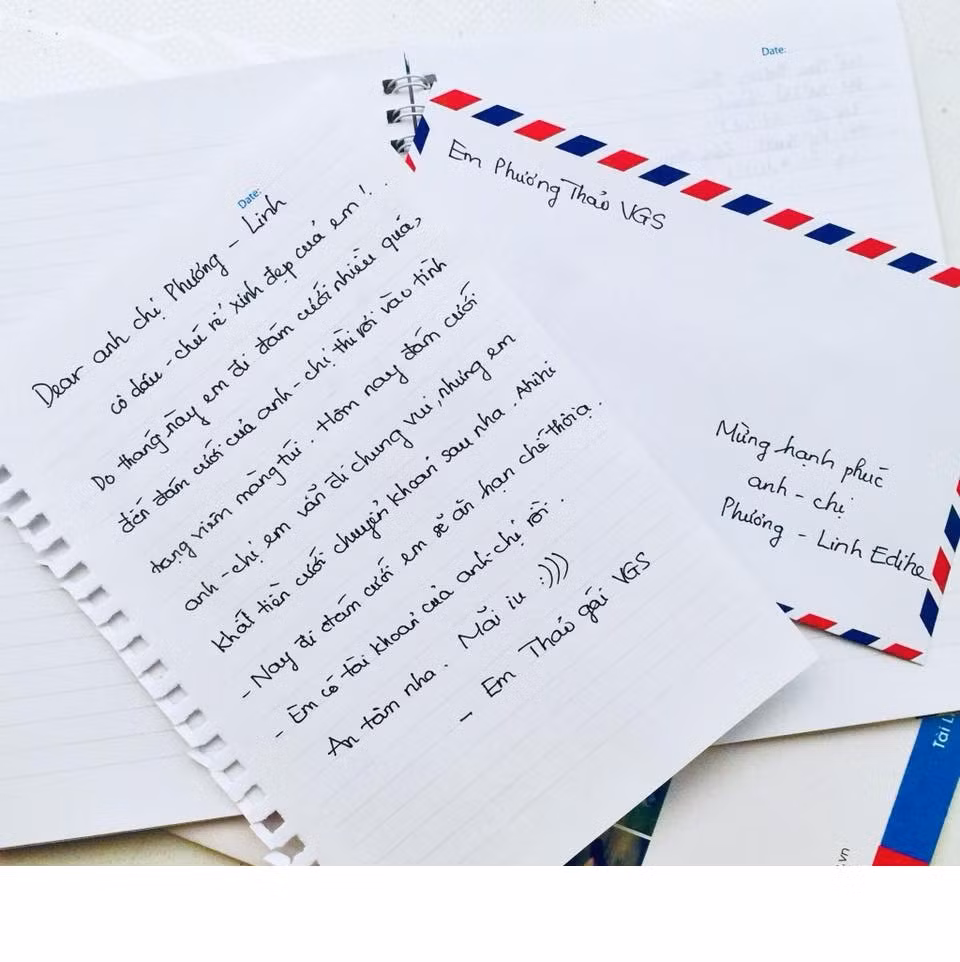 Date:
Dear anh chị Phương - Linh
cô dâu - chú rể xinh đẹp của em!..
Do tháng này em đi đám cưới nhiều quá,
đến đám cưới của anh - chị thì rơi vào tình
trạng viêm màng túi. Hôm nay đám cưới
anh - chị em vẫn đi chung vui, nhưng em
khất tiền cưới chuyển khoản sau nha. Ahihi
- Nay đi đám cưới em sẽ ăn hạn chế thôi ạ.
- Em có tài khoản của anh - chị rồi.
An tâm nha. Mãi iu :)))
- Em Thảo gái VGS
Date:
Em Phương Thảo VGS
Mừng hạnh phúc
anh - chị
Phương - Linh Edihe
Tài L
.vn